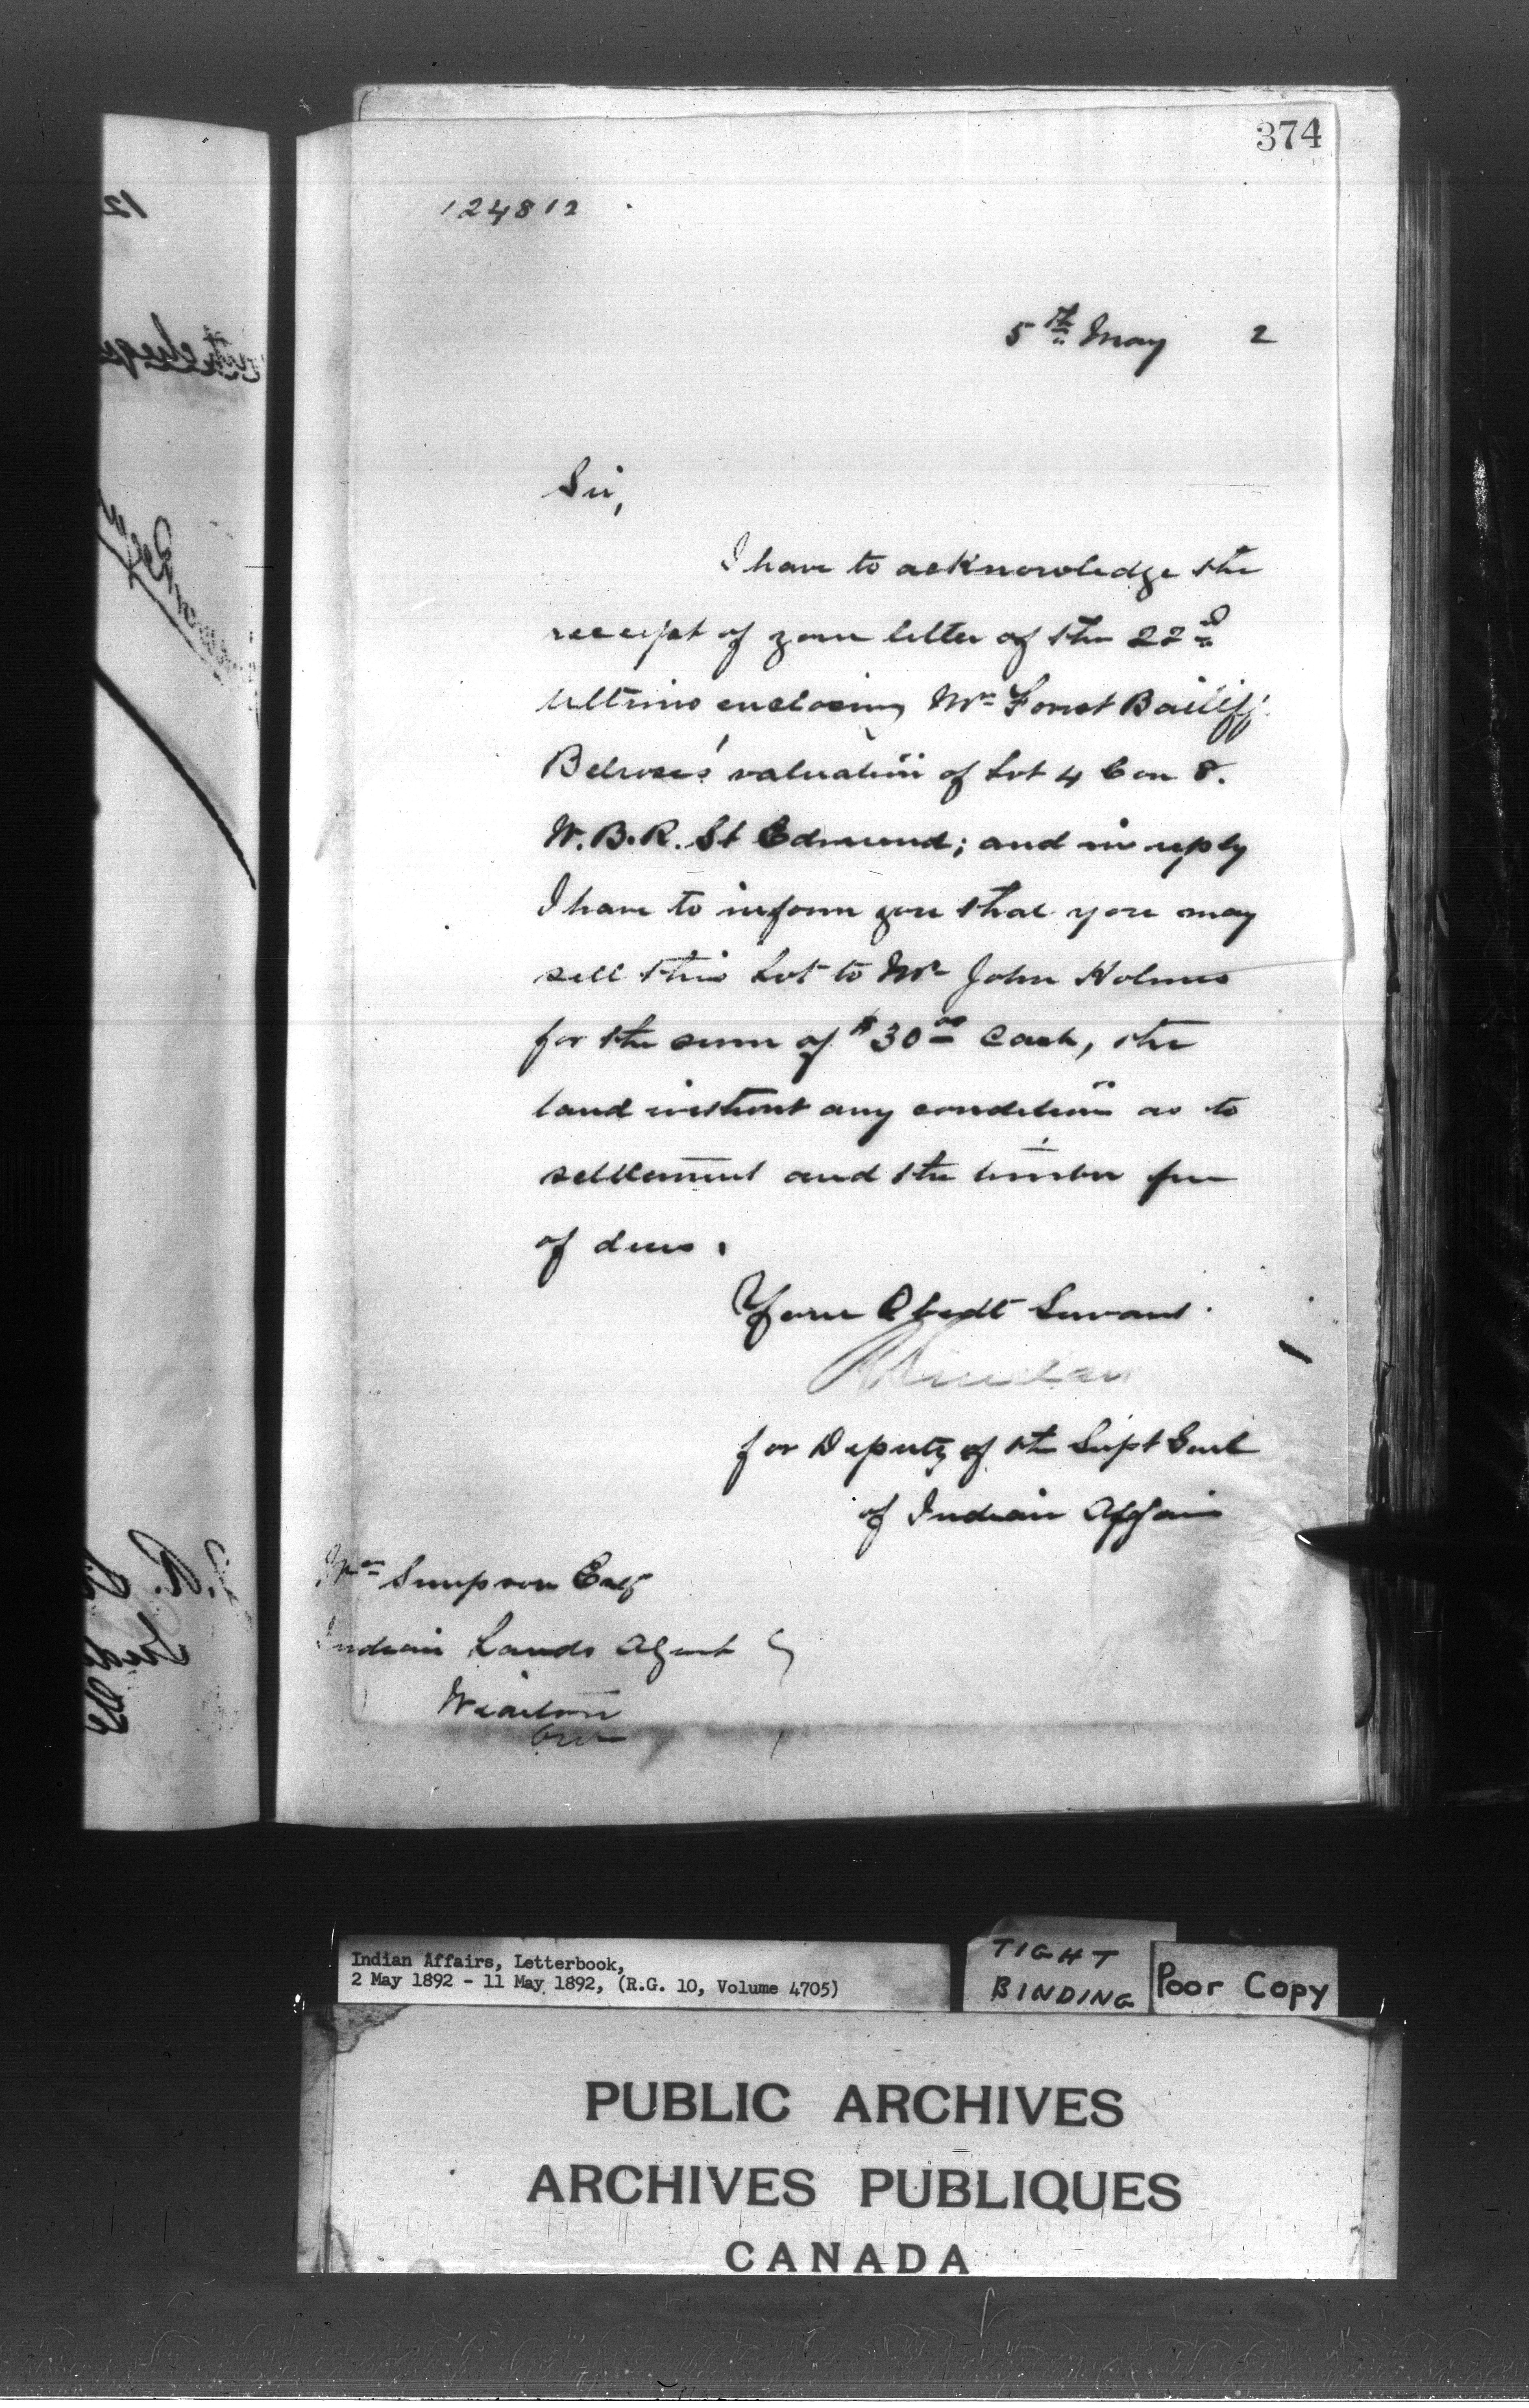 374
124812
5th May 2
Sir,
I have to acknowledge the
receipt of your letter of the 22nd
Ultimo enclosing Mr Forest Bailiff
Belrose's valuation of Lot 4 Con 8.
W.B.R. St Edmund; and in reply
I have to inform you that you may
sell this Lot to Mr John Holmes
for the sum of $30.00 Cash, the
land without any condition as to
settlement and the timber free
of dues.
Your Obedt Servant.
for Deputy of the Supt Genl
of Indian Affairs
Simpson Esq
Indian Lands Agent
Wiarton
Ont
Indian Affairs, Letterbook,
2 May 1892 - 11 May 1892, (R.G. 10, Volume 4705)
TIGHT
BINDING
Poor Copy
PUBLIC ARCHIVES
ARCHIVES PUBLIQUES
CANADA